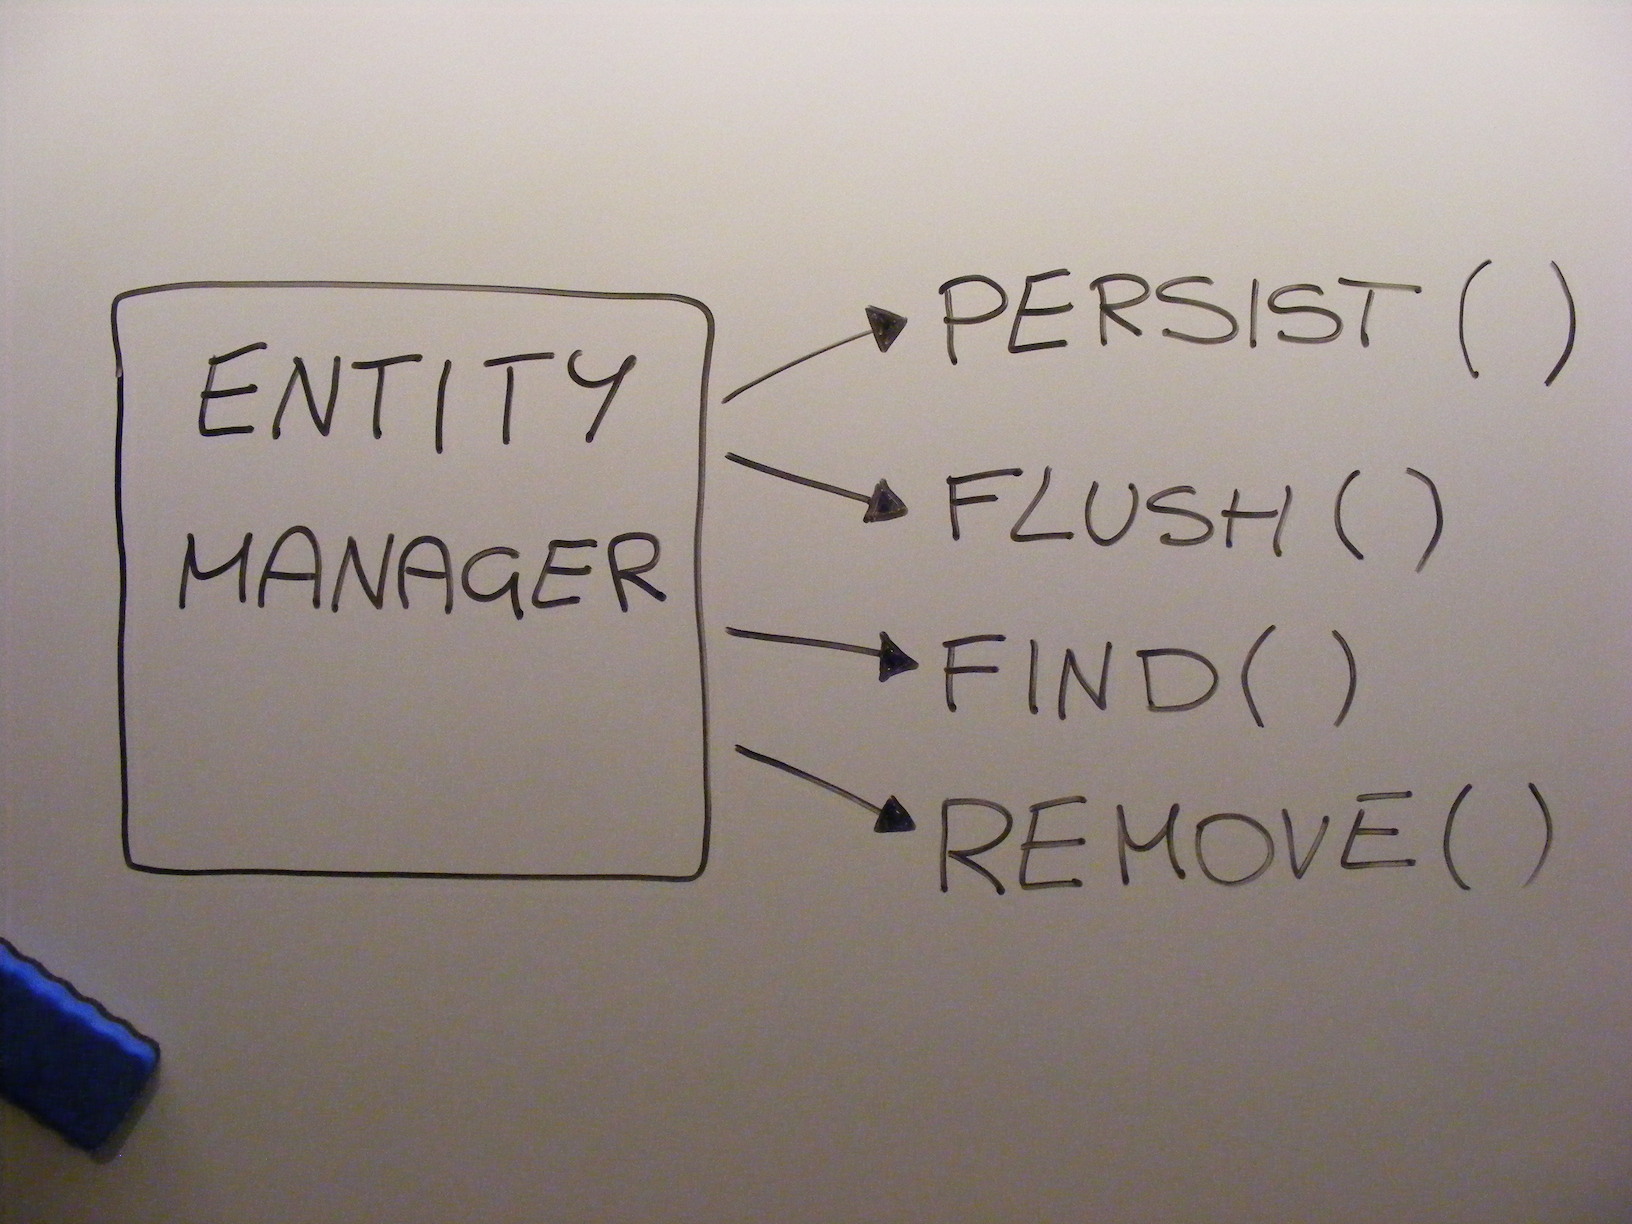 ENTITY
MANAGER
PERSIST ( )
FLUSH ( )
FIND ( )
REMOVE ( )